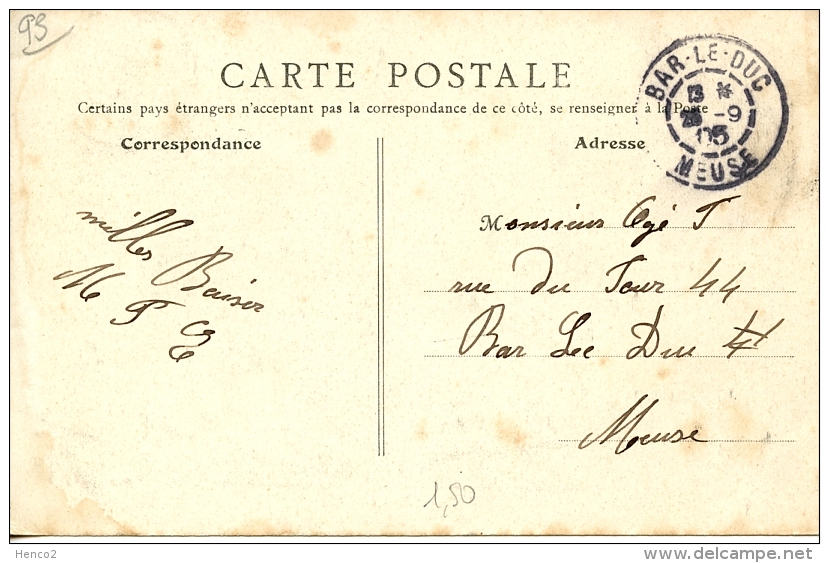 93
CARTE POSTALE
Certains pays étrangers n'acceptant pas la correspondance de ce côté, se renseigner à la Poste
BAR-LE-DUC
13
-9
05
MEUSE
Correspondance
milles Baiser
M P E
Adresse
Monsieur Ogé T
rue du Tour 44
Bar Lee Duc
Meuse
1,50
Henco2
delcampe.net